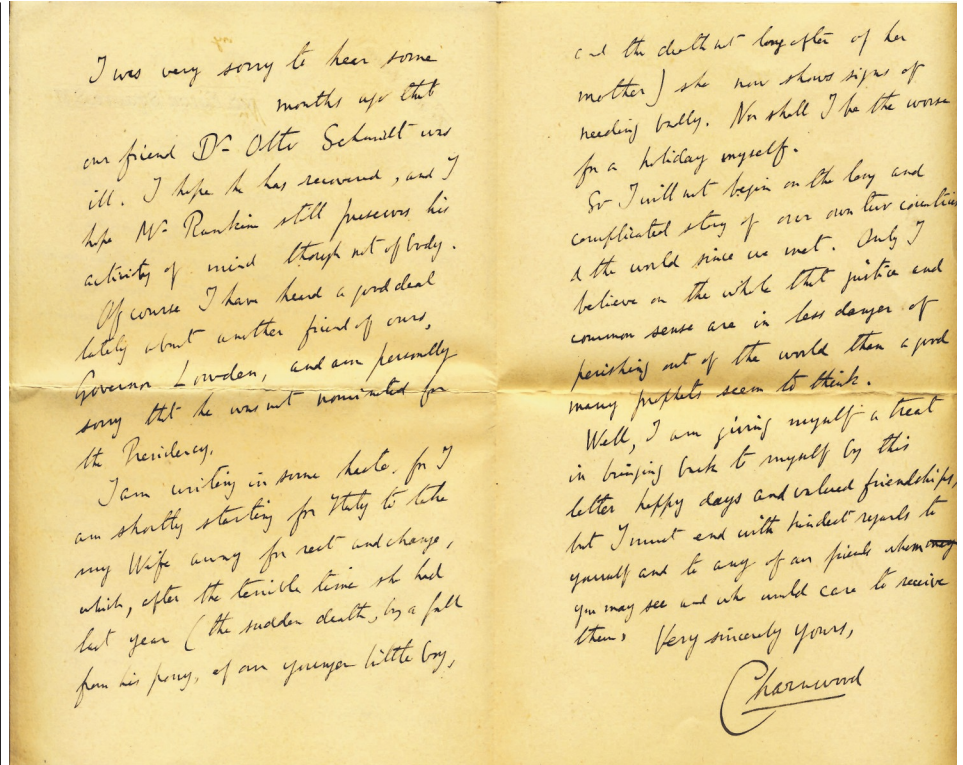 I was very sorry to hear some
months ago that
our friend Dr Otto Schmidt was
ill. I hope he has recovered, and I
hope Mr Rankin still preserves his
activity of mind though not of body.
Of course I have heard a good deal
lately about another friend of ours,
Governor Lowden, and am personally
sorry that he was not nominated for
the Presidency.
I am writing in some haste, for I
am shortly starting for Italy to take
my Wife away for rest and change,
which, after the terrible time she had
last year (the sudden death, by a fall
from his pony, of our younger little boy,
and the death not long after of her
mother) she now shows signs of
needing badly. Nor shall I be the worse
for a holiday myself.
So I will not begin on the long and
complicated story of our own two countries
& the world since we met. Only I
believe on the whole that justice and
common sense are in less danger of
perishing out of the world than a good
many prophets seem to think.
Well, I am giving myself a treat
in bringing back to myself by this
letter happy days and valued friendships,
but I must end with kindest regards to
yourself and to any of our friends whom
you may see and who would care to receive
them. Very sincerely yours,
Charnwood